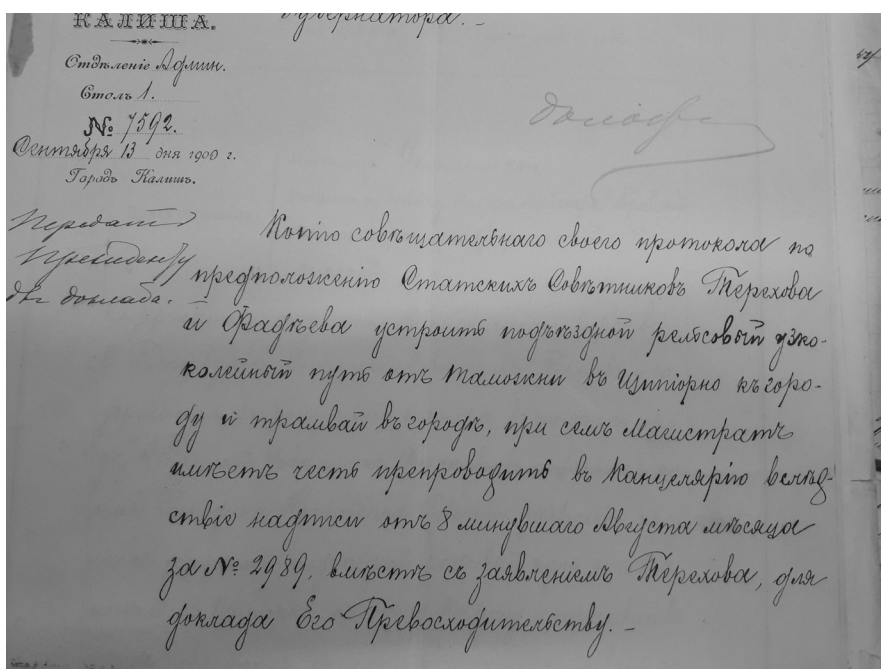 КАЛИША.
Губернатора. –
Отдѣленіе Админ.
Столъ 1.
№ 7592.
Сентября 13 дня 1900 г.
Городъ Калишъ.
Передать
Президенту
для доклада. –
Копію совѣщательнаго своего протокола по
предположенію Статскихъ Совѣтниковъ Терехова
и Фадѣева устроить подъѣздной рельсовый узко-
колейный путь отъ таможни въ Щипіорно къ горо-
ду и трамвай въ городѣ, при семъ Магистратъ
имѣетъ честь препроводить въ Канцелярію вслѣд-
ствіе надписи отъ 8 минувшаго Августа мѣсяца
за № 2989, вмѣстѣ съ заявленіемъ Терехова, для
доклада Его Превосходительству. –